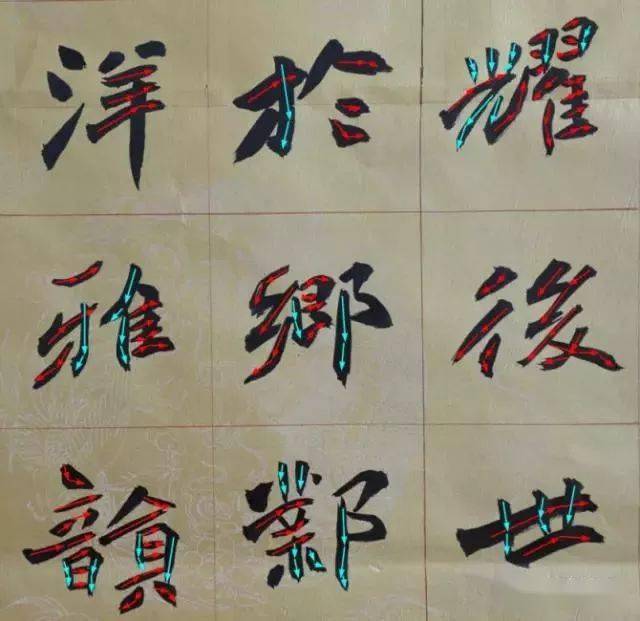 耀後世
於鄉鄴
洋雅韻